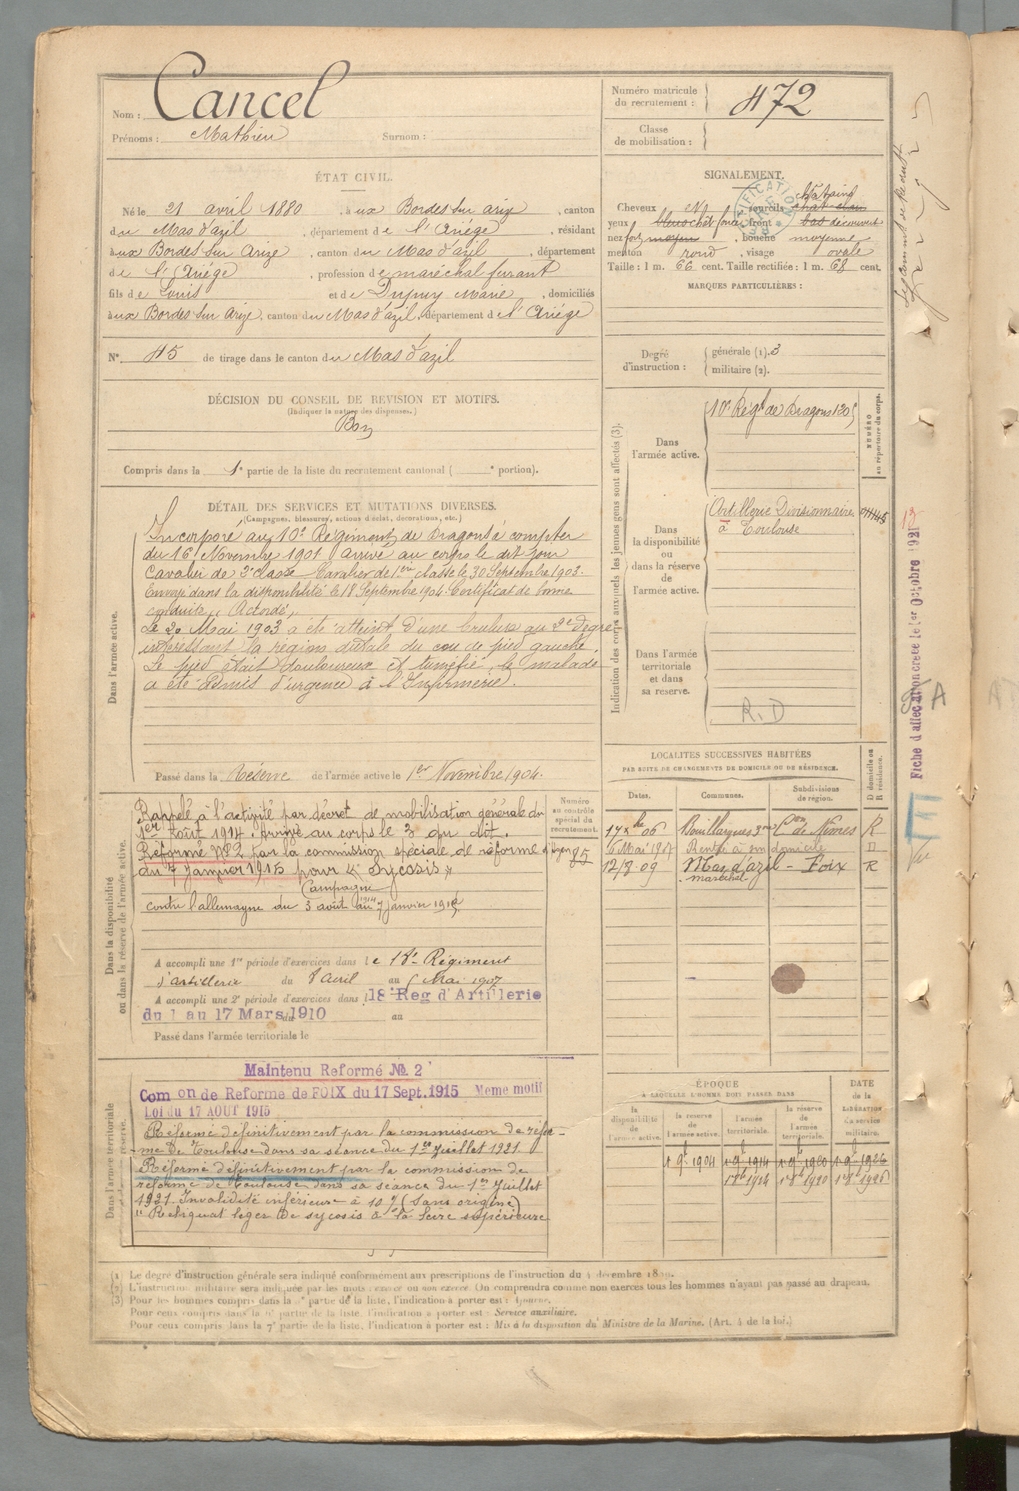 Nom : Cancel
Prénoms : Mathieu Surnom :
Numéro matricule du recrutement : 472
Classe de mobilisation :
ÉTAT CIVIL.
Né le 21 avril 1880, aux Bordes sur arize, canton
du Mas d'azil, département de l'Ariége, résidant
aux Bordes sur Arize, canton du Mas d'azil, département
de l'Ariége, profession de maréchal ferrant
fils de Louis et de Dupuy Marie, domiciliés
aux Bordes sur Arize, canton du Mas d'azil, département de l'Ariége
N° 45 de tirage dans le canton du Mas d'azil
SIGNALEMENT.
Cheveux N, sourcils chatains
yeux bleus chat foncé, front bas découvert
nez fort moyen, bouche moyenne
menton rond, visage ovale
Taille : 1 m. 66 cent. Taille rectifiée : 1 m. 68 cent.
MARQUES PARTICULIÈRES :
Degré d'instruction : générale (1). 3
militaire (2).
DÉCISION DU CONSEIL DE REVISION ET MOTIFS.
(Indiquer la nature des dispenses.)
Bon
Compris dans la 1e partie de la liste du recrutement cantonal ( e portion).
DÉTAIL DES SERVICES ET MUTATIONS DIVERSES.
(Campagnes, blessures, actions d'éclat, décorations, etc.)
Dans l'armée active.
Incorporé au 10e Régiment de Dragons à compter
du 16 Novembre 1901 arrivé au corps le dit jour
Cavalier de 2e classe Cavalier de 1ère classe le 30 Septembre 1903.
Envoyé dans la disponibilité le 18 Septembre 1904. Certificat de bonne
conduite "Accordé"
Le 20 Mai 1903 a été atteint d'une brulure au 2e degré
intéressant la région du cou de pied gauche.
Le pied était douloureux et tuméfié, le malade
a été admis d'urgence à l'Infirmerie.
Passé dans la Réserve de l'armée active le 1er Novembre 1904.
Indication des corps auxquels les jeunes gens sont affectés (3).
NUMÉRO au répertoire du corps.
Dans l'armée active.
10e Régt de Dragons 120
Dans la disponibilité ou dans la réserve de l'armée active.
Artillerie Divisionnaire
à Toulouse
Dans l'armée territoriale et dans sa réserve.
R.D
LOCALITÉS SUCCESSIVES HABITÉES
PAR SUITE DE CHANGEMENTS DE DOMICILE OU DE RÉSIDENCE.
Dates. Communes. Subdivisions de région. D domicile ou R résidence.
17 Xbre 06 Bouillargues de Nîmes R
6 Mai 1907 Rentré à son domicile D
12/8 09 Mas d'azil - Foix R
maréchal
Dans la disponibilité ou dans la réserve de l'armée active.
Numéro au contrôle spécial du recrutement.
Rappelé à l'activité par décret de mobilisation générale du
1er Août 1914. Arrivé au corps le 3 du dit.
Réformé N°2 par la commission spéciale de réforme
du 7 janvier 1915 pour "Sycosis"
85
Campagne
contre l'allemagne du 3 août 1914 au 7 janvier 1915
A accompli une 1re période d'exercices dans le 18e Régiment
d'artillerie du 8 avril au 5 Mai 1907
A accompli une 2e période d'exercices dans 18e Reg d'Artillerie
du 1 au 17 Mars 1910 au
Passé dans l'armée territoriale le
Dans l'armée territoriale
Maintenu Reformé No 2
Comon de Reforme de FOIX du 17 Sept. 1915 Meme motif
Loi du 17 AOUT 1915
Réformé définitivement par la commission de réfor-
me de Toulouse dans sa séance du 1er Juillet 1921.
Réformé définitivement par la commission de
réforme de Toulouse dans sa séance du 1er Juillet
1921. Invalidité inférieure à 10 % (sans origine)
"Reliquat léger de sycosis à la lèvre supérieure
ÉPOQUE
A LAQUELLE L'HOMME DOIT PASSER DANS
la disponibilité de l'armée active. la réserve de l'armée active. l'armée territoriale. la réserve de l'armée territoriale. DATE de la LIBÉRATION du service militaire.
1 9bre 1904 1 9bre 1914 1 9bre 1920 1 9bre 1926
Fiche d'affectation créée le 1er Octobre 1921
(1) Le degré d'instruction générale sera indiqué conformément aux prescriptions de l'instruction du
(2) L'instruction militaire sera indiquée par les mots : exercé ou non exercé. On comprendra comme non exercés tous les hommes n'ayant pas passé au drapeau.
(3) Pour les hommes compris dans la partie de la liste, l'indication à porter est :
Pour ceux compris dans la partie de la liste, l'indication à porter est : Service auxiliaire.
Pour ceux compris dans la 7e partie de la liste, l'indication à porter est : Mis à la disposition du Ministre de la Marine. (Art. 4 de la loi.)